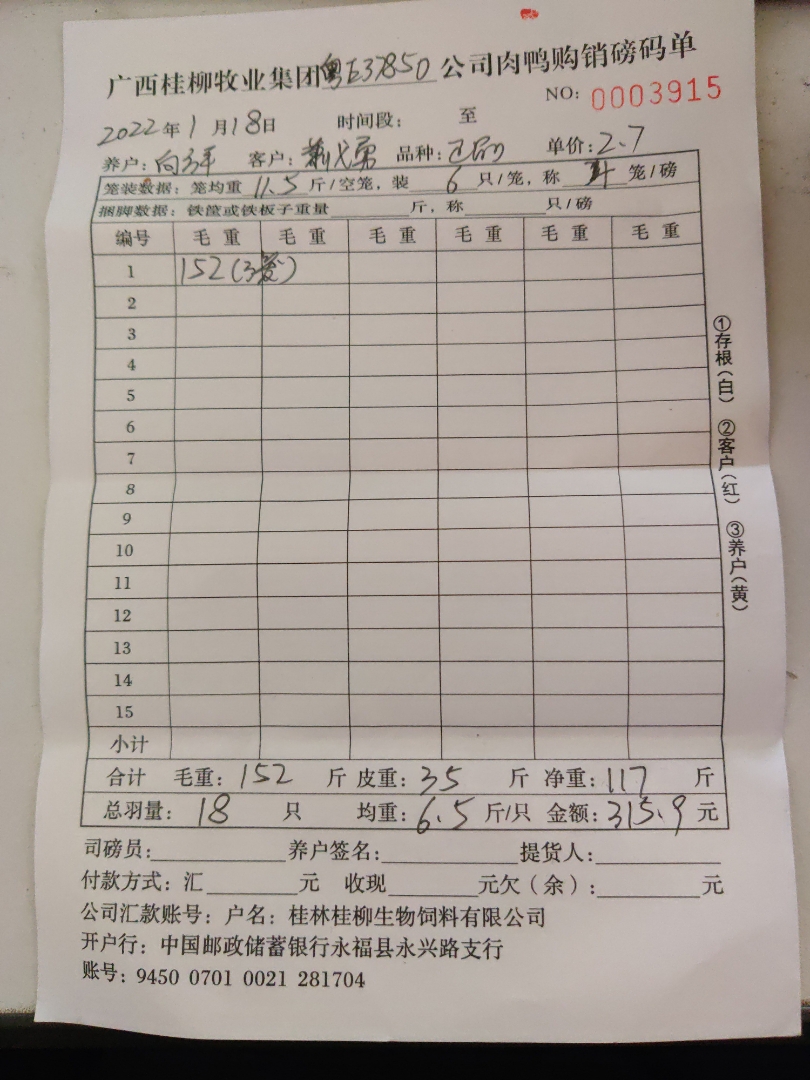 广西桂柳牧业集团粤E37850公司肉鸭购销磅码单
NO: 0003915
2022年1月18日 时间段: 至
养户: 向 客户: 品种: 单价:2.7
笼装数据: 笼均重 11.5 斤/空笼, 装 6 只/笼, 称 笼/磅
捆脚数据: 铁筐或铁板子重量 斤, 称 只/磅
编号 毛重 毛重 毛重 毛重 毛重 毛重
1 152(3
2
3
4
5
6
7
8
9
10
11
12
13
14
15
小计
合计 毛重: 152 斤 皮重: 35 斤 净重: 117 斤
总羽量: 18 只 均重: 6.5 斤/只 金额: 315.9 元
司磅员: 养户签名: 提货人:
付款方式: 汇 元 收现 元欠(余): 元
公司汇款账号: 户名: 桂林桂柳生物饲料有限公司
开户行: 中国邮政储蓄银行永福县永兴路支行
账号: 9450 0701 0021 281704
①存根(白) ②客户(红) ③养户(黄)